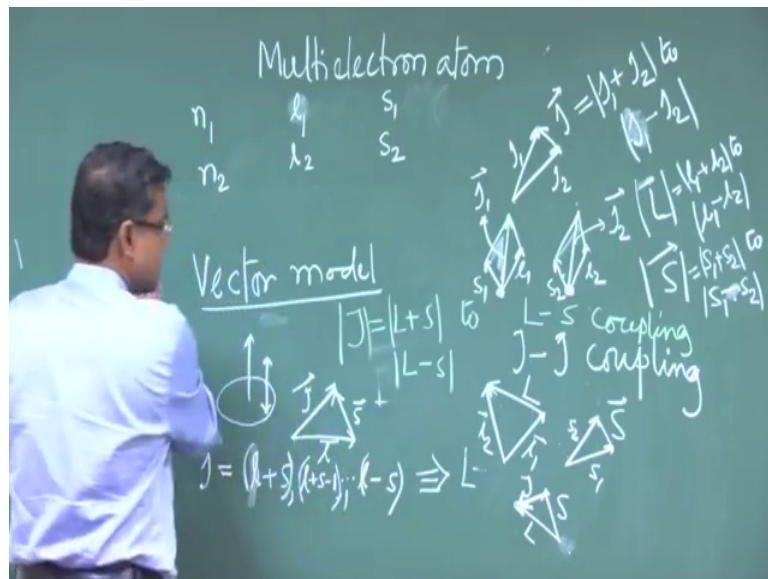 Multielectron atom
n₁ l₁ s₁
n₂ l₂ s₂
J⃗ = |J₁ + J₂| to
|J₁ - J₂|
J₁ J₂
J⃗₁ J⃗₂
s₁ l₁ s₂ l₂
|L⃗| = |l₁ + l₂| to
|l₁ - l₂|
|S⃗| = |s₁ + s₂| to
|s₁ - s₂|
Vector model
|J| = |L+S| to
|L-S|
L-S coupling
J-J coupling
J⃗ s⃗ l⃗
L l⃗₂ l⃗₁
s₂ S⃗ s₁
J = (l+s), (l+s-1), ... l-s) ⇒ L-
J S L